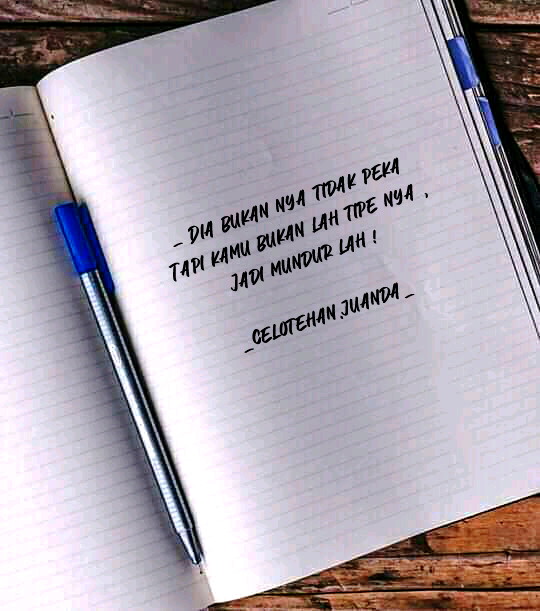 _ DIA BUKAN NYA TIDAK PEKA
TAPI KAMU BUKAN LAH TIPE NYA ,
JADI MUNDUR LAH !
_CELOTEHAN JUANDA _